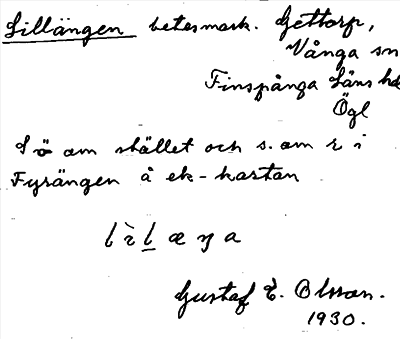 Lillängen betesmark. Gettorp,
Vånga sn
Finspånga Läns hd
Ögl
S ö om stället och s. om r i
Fyrängen å ek-kartan
Gustaf E. Olsson.
1930.